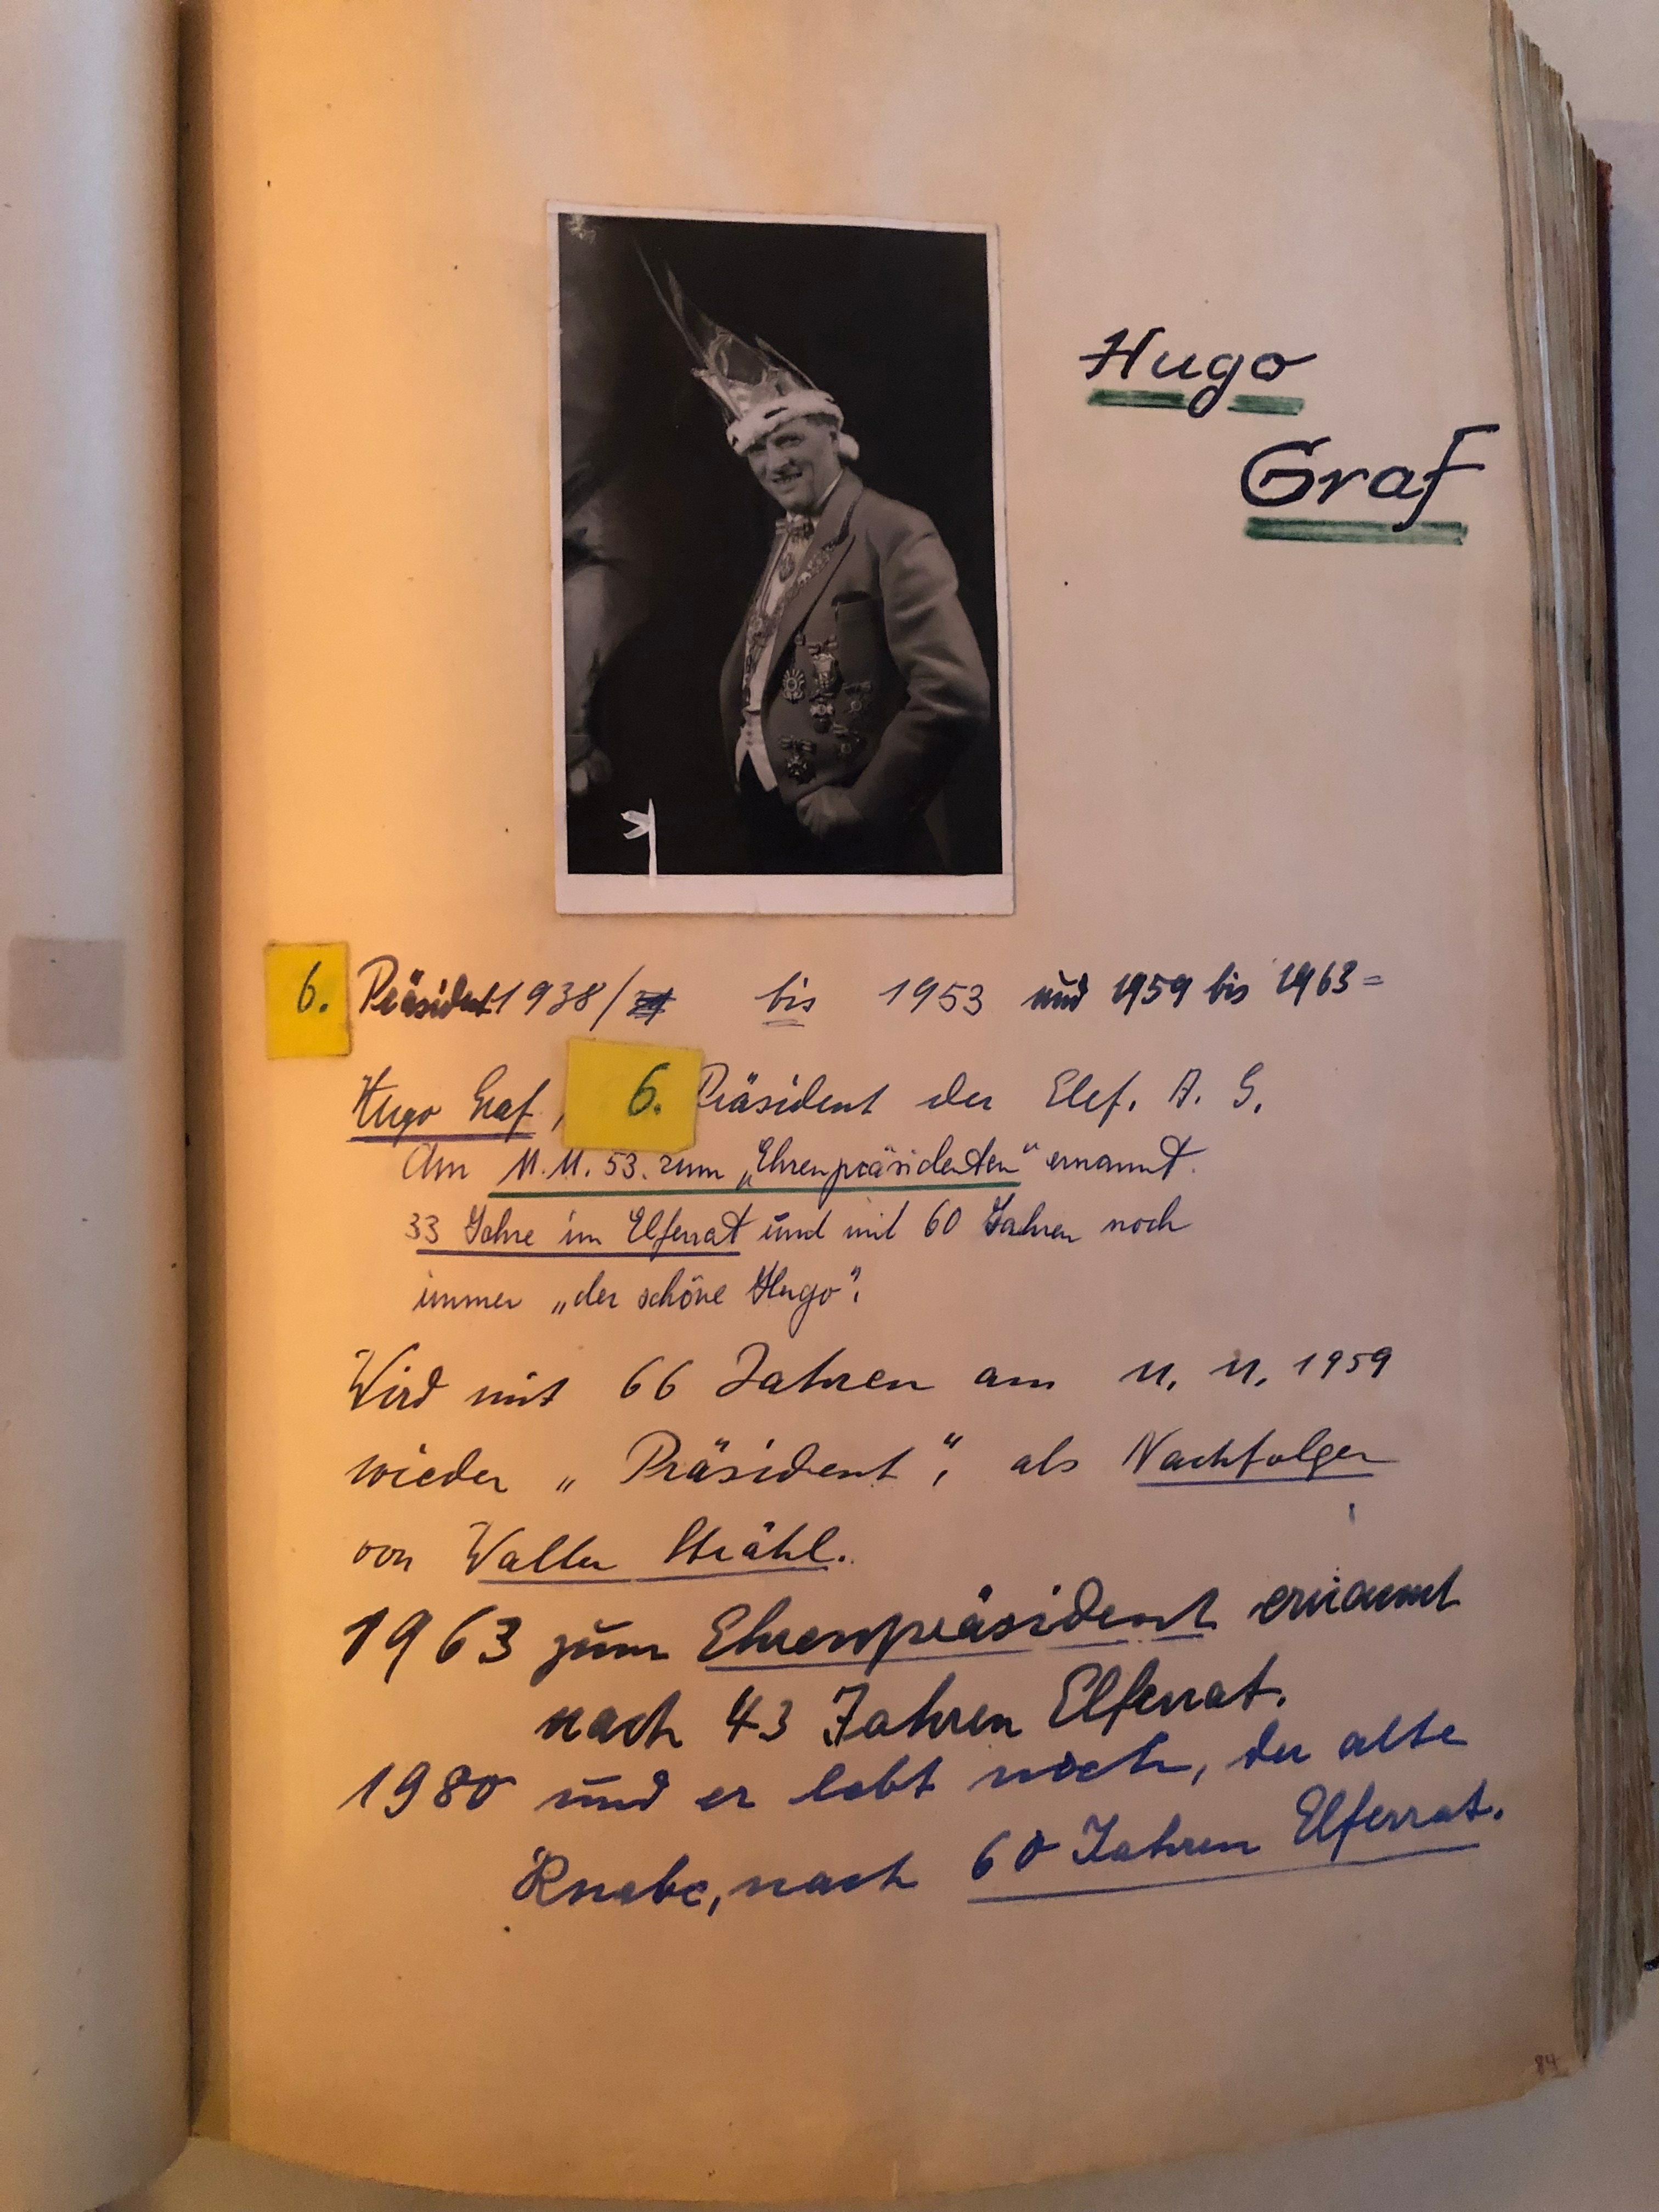 Hugo
Graf
6. Präsident 1938/ bis 1953 und 1959 bis 1963=
Hugo Graf, 6. Präsident der Elef. A. G.
Am 11.11.53. zum „Ehrenpräsidenten“ ernannt.
33 Jahre im Elferrat und mit 60 Jahren noch
immer „der schöne Hugo“.
Wird mit 66 Jahren am 11. 11. 1959
wieder „Präsident“, als Nachfolger
von Walter Strähl.
1963 zum Ehrenpräsident ernannt
nach 43 Jahren Elferrat.
1980 und er lebt noch, der alte
Knabe, nach 60 Jahren Elferrat.
84